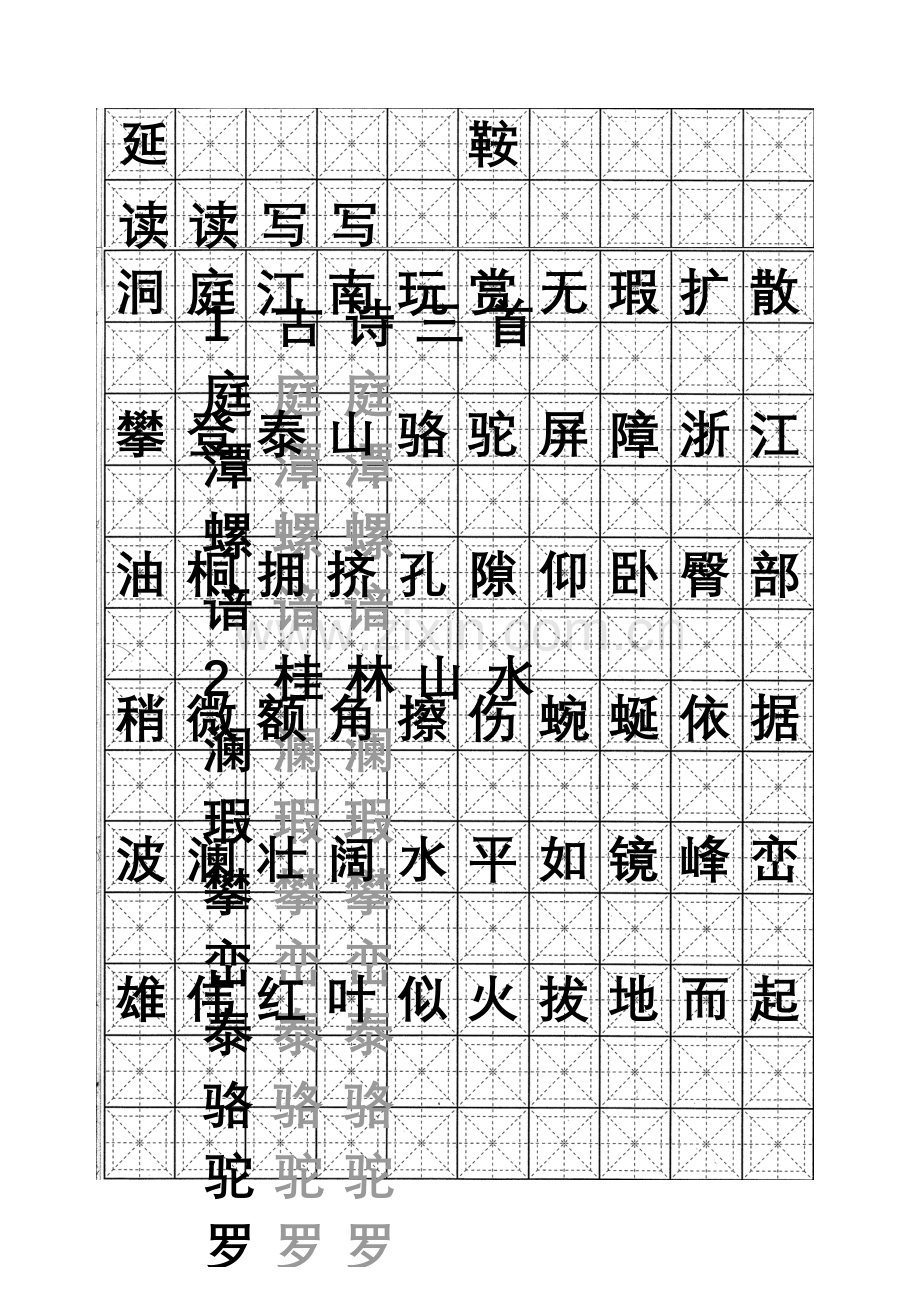 延 鞍
读 读 写 写
洞 庭 江 南 玩 赏 无 瑕 扩 散
1 古 诗 三 首
庭 庭 庭
攀 登 泰 山 骆 驼 屏 障 浙 江
潭 潭 潭
螺 螺 螺
油 桐 拥 挤 孔 隙 仰 卧 臀 部
谙 谙 谙
www.zixin.com.cn
2 桂 林 山 水
稍 微 额 角 擦 伤 蜿 蜒 依 据
澜 澜 澜
瑕 瑕 瑕
波 澜 壮 阔 水 平 如 镜 峰 峦
攀 攀 攀
峦 峦 峦
雄 伟 红 叶 似 火 拔 地 而 起
泰 泰 泰
骆 骆 骆
驼 驼 驼
罗 罗 罗